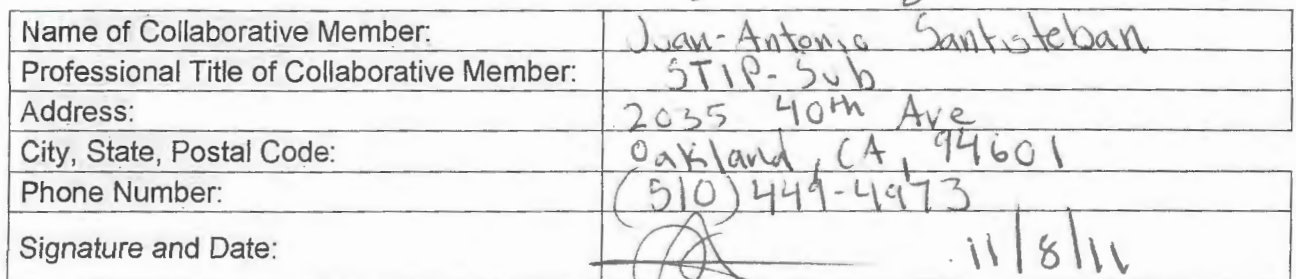 Name of Collaborative Member: Juan-Antonio Santisteban
Professional Title of Collaborative Member: STIP-Sub
Address: 2035 40th Ave
City, State, Postal Code: Oakland, CA, 94601
Phone Number: (510) 449-4973
Signature and Date: 11/8/11